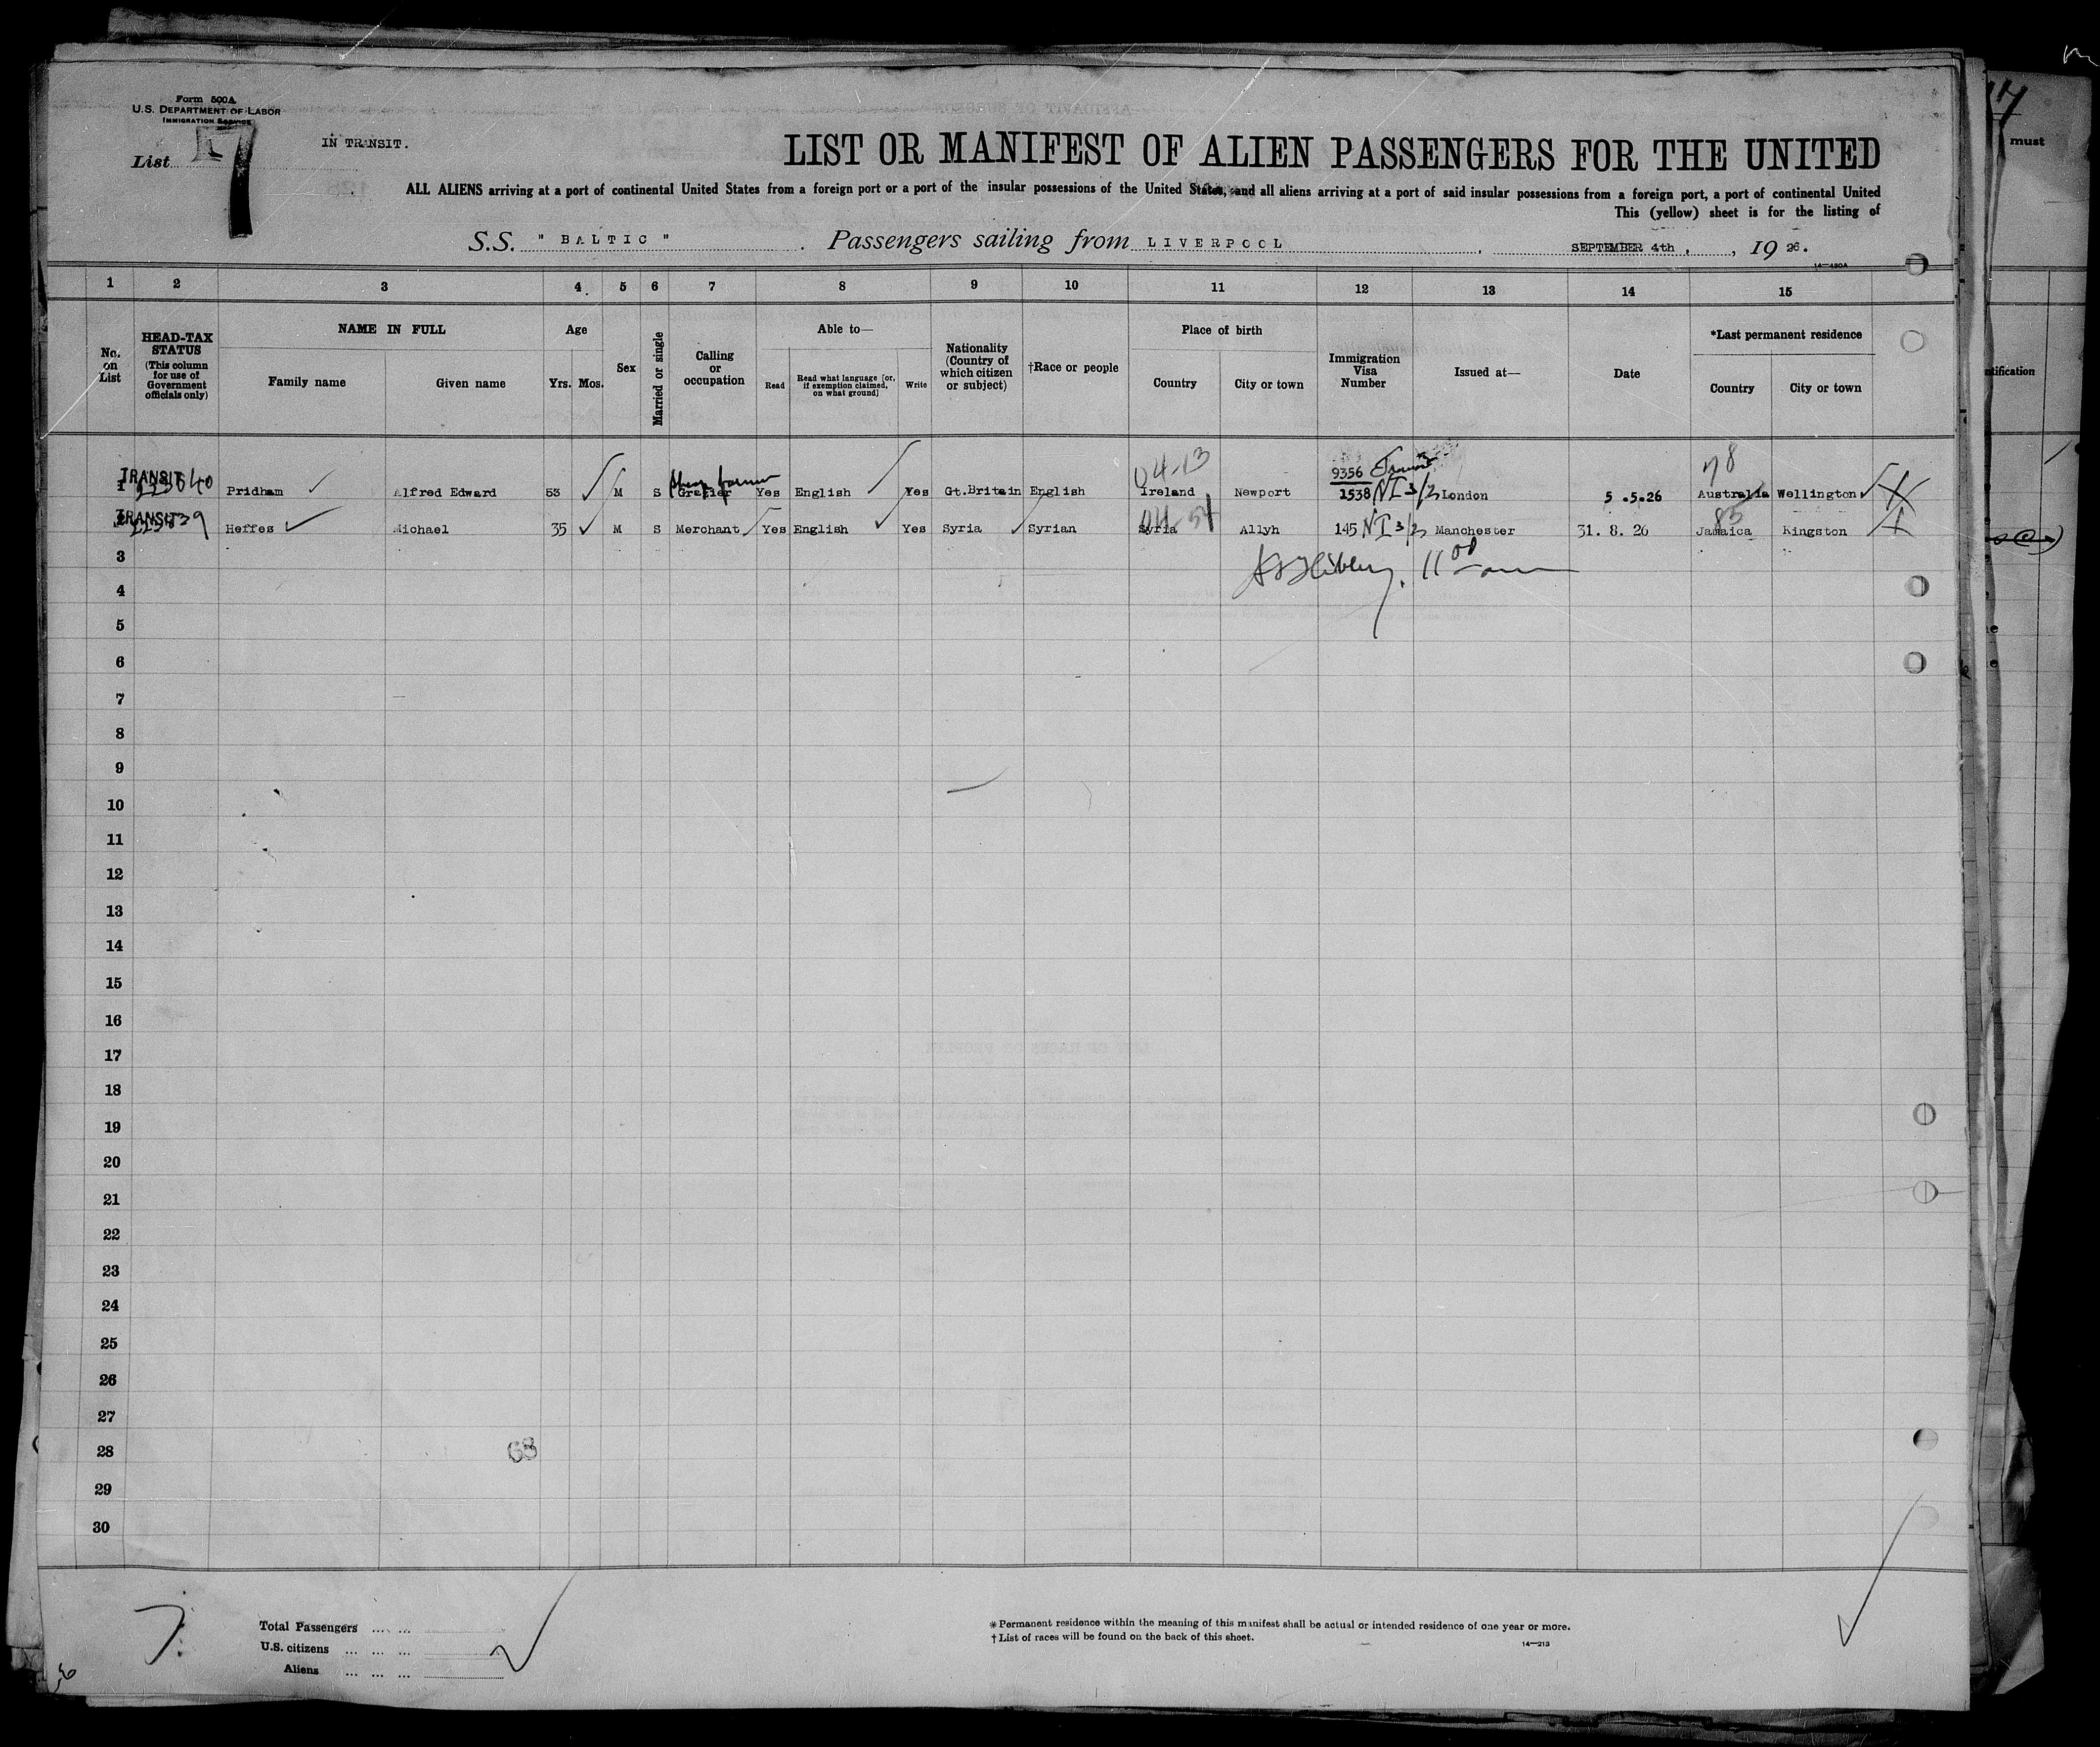 Form 500A
U.S. DEPARTMENT OF LABOR
IMMIGRATION SERVICE
List 7
IN TRANSIT.
LIST OR MANIFEST OF ALIEN PASSENGERS FOR THE UNITED
ALL ALIENS arriving at a port of continental United States from a foreign port or a port of the insular possessions of the United States, and all aliens arriving at a port of said insular possessions from a foreign port, a port of continental United
This (yellow) sheet is for the listing of
S.S. " BALTIC " . Passengers sailing from LIVERPOOL , SEPTEMBER 4th, , 19 26.
14—480A
1 2 3 4 5 6 7 8 9 10 11 12 13 14 15
No. on List
HEAD-TAX STATUS (This column for use of Government officials only)
NAME IN FULL
Family name Given name
Age
Yrs. Mos.
Sex
Married or single
Calling or occupation
Able to—
Read
Read what language [or, if exemption claimed, on what ground]
Write
Nationality (Country of which citizen or subject)
†Race or people
Place of birth
Country City or town
Immigration Visa Number
Issued at—
Date
*Last permanent residence
Country City or town
04-13 9356 Transit 78
TRANSIT
1 Pridham Alfred Edward 53 M S Grazier Yes English Yes Gt.Britain English Ireland Newport 1538 NI 3/2 London 5 .5.26 Australia Wellington
TRANSIT 04-54 85
2 Heffes Michael 35 M S Merchant Yes English Yes Syria Syrian Syria Allyh 145 NI 3/2 Manchester 31. 8. 26 Jamaica Kingston
3
4
5
6
7
8
9
10
11
12
13
14
15
16
17
18
19
20
21
22
23
24
25
26
27
28
68
29
30
7.
Total Passengers ... ...
U.S. citizens ... ... ...
Aliens ... ... ...
* Permanent residence within the meaning of this manifest shall be actual or intended residence of one year or more.
† List of races will be found on the back of this sheet.
14—213
must